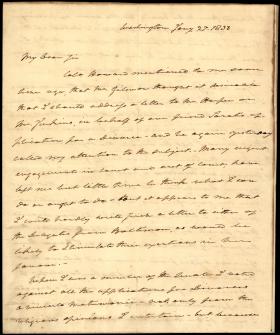 Washington Jany 27. 1832
My Dear Sir
Colo Howard mentioned to me some
time ago, that Mr Gilmor thought it desirable
that I should address a letter to Mr Harper or
Mr Jenkins, in behalf of our friend Sarah's ap-
plication for a divorce — and he again yesterday
called my attention to the subject. Many urgent
engagements in court and out of court have
left me but little time to think what I can
do or ought to do. But it appears to me that
I could hardly write such a letter to either of
the Delegates from Baltimore, as would be
likely to stimulate their exertions in her
favour.
When I was a member of the Senate I voted
against all the applications for Divorces
a vinculo matrimonii — not only from the
religious opinions I entertain — but because